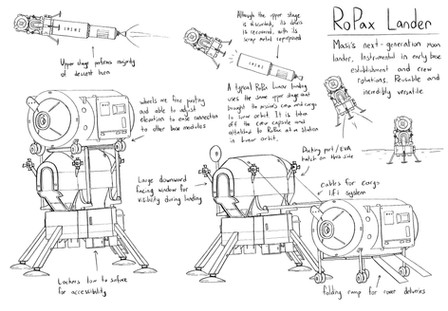 RoPax Lander
Masi's next-generation moon
lander, Instrumental in early base
establishment and crew
rotations. Reusable and
incredibly versatile
Upper stage performs majority
of descent burn
Although the upper stage
is discarded, its
is recovered, with its
large metal repurposed
A typical RoPax lunar landing
uses the same upper stage that
brought to crew and cargo
to lunar orbit. It is taken
off the crew capsule and
attached to RoPax at a station
in lunar orbit.
wheels are free pivoting
and able to adjust
elevation to ease connection
to other base modules
Large downward
facing window for
visibility during landing
Docking port / EVA
hatch on this side
cables for cargo
lift system
Lockers low to surface
for accessibility
folding ramp for rover deliveries